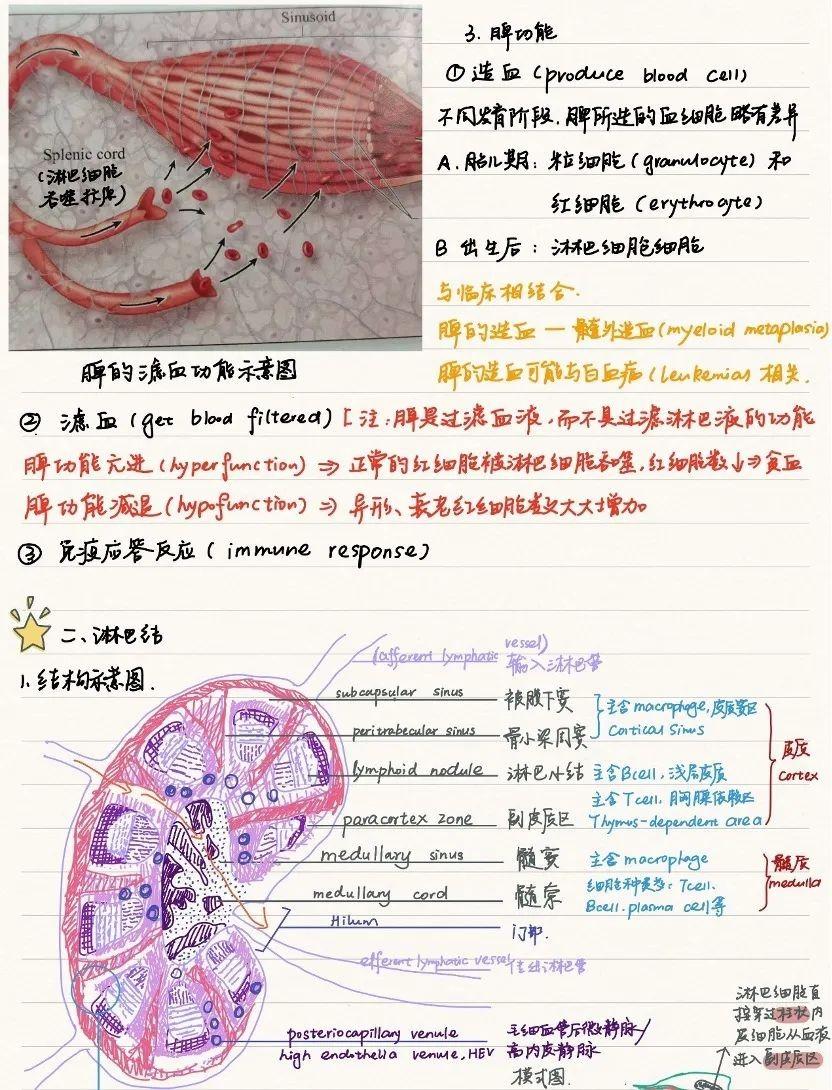 Sinusoid
Splenic cord
(淋巴细胞
吞噬抗原)
脾的滤血功能示意图
3. 脾功能
① 造血 (produce blood cell)
不同发育阶段,脾所造的血细胞略有差异
A. 胎儿期: 粒细胞 (granulocyte) 和
红细胞 (erythrocyte)
B 出生后: 淋巴细胞细胞
与临床相结合.
脾的造血 — 髓外造血 (myeloid metaplasia)
脾的造血可能与白血病 (leukemias 相关.
② 滤血 (get blood filtered) [注:脾是过滤血液,而不具过滤淋巴液的功能
脾功能亢进 (hyperfunction) ⇒ 正常的红细胞被淋巴细胞吞噬,红细胞数↓⇒贫血
脾功能减退 (hypofunction) ⇒ 异形、衰老红细胞数大大增加
③ 免疫应答反应 (immune response)
二、淋巴结
1. 结构示意图.
(afferent lymphatic vessel)
输入淋巴管
subcapsular sinus 被膜下窦
peritrabecular sinus 骨小梁周窦
主含macrophage,皮质窦区
Cortical sinus
lymphoid nodule 淋巴小结 主含Bcell,浅层皮质
paracortex zone 副皮质区
主含Tcell.胸腺依赖区
Thymus-dependent area
皮质
cortex
medullary sinus 髓窦 主含macrophage
medullary cord 髓索
细胞种类多: Tcell.
Bcell.plasma cell等
髓质
medulla
Hilum 门部.
efferent lymphatic vessel 输出淋巴管
posteriocapillary venule
high endothelia venule, HEV
毛细血管后微静脉/
高内皮静脉
模式图.
淋巴细胞直
接穿过柱状内
皮细胞从血液
进入副皮质区